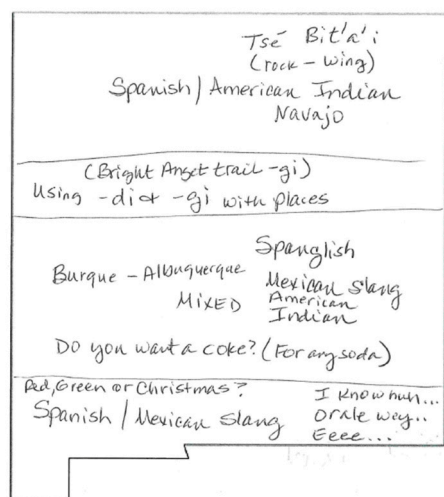 Tsé Bit'a'i
(rock - wing)
Spanish / American Indian
Navajo
(Bright Angel trail -gi)
Using -di or -gi with places
Spanglish
Burque - Albuquerque
Mexican Slang
MIXED
American
Indian
Do you want a coke? (For any soda)
Red, Green or Christmas?
I know huh...
Spanish / Mexican Slang
Orale wey..
Eeee...